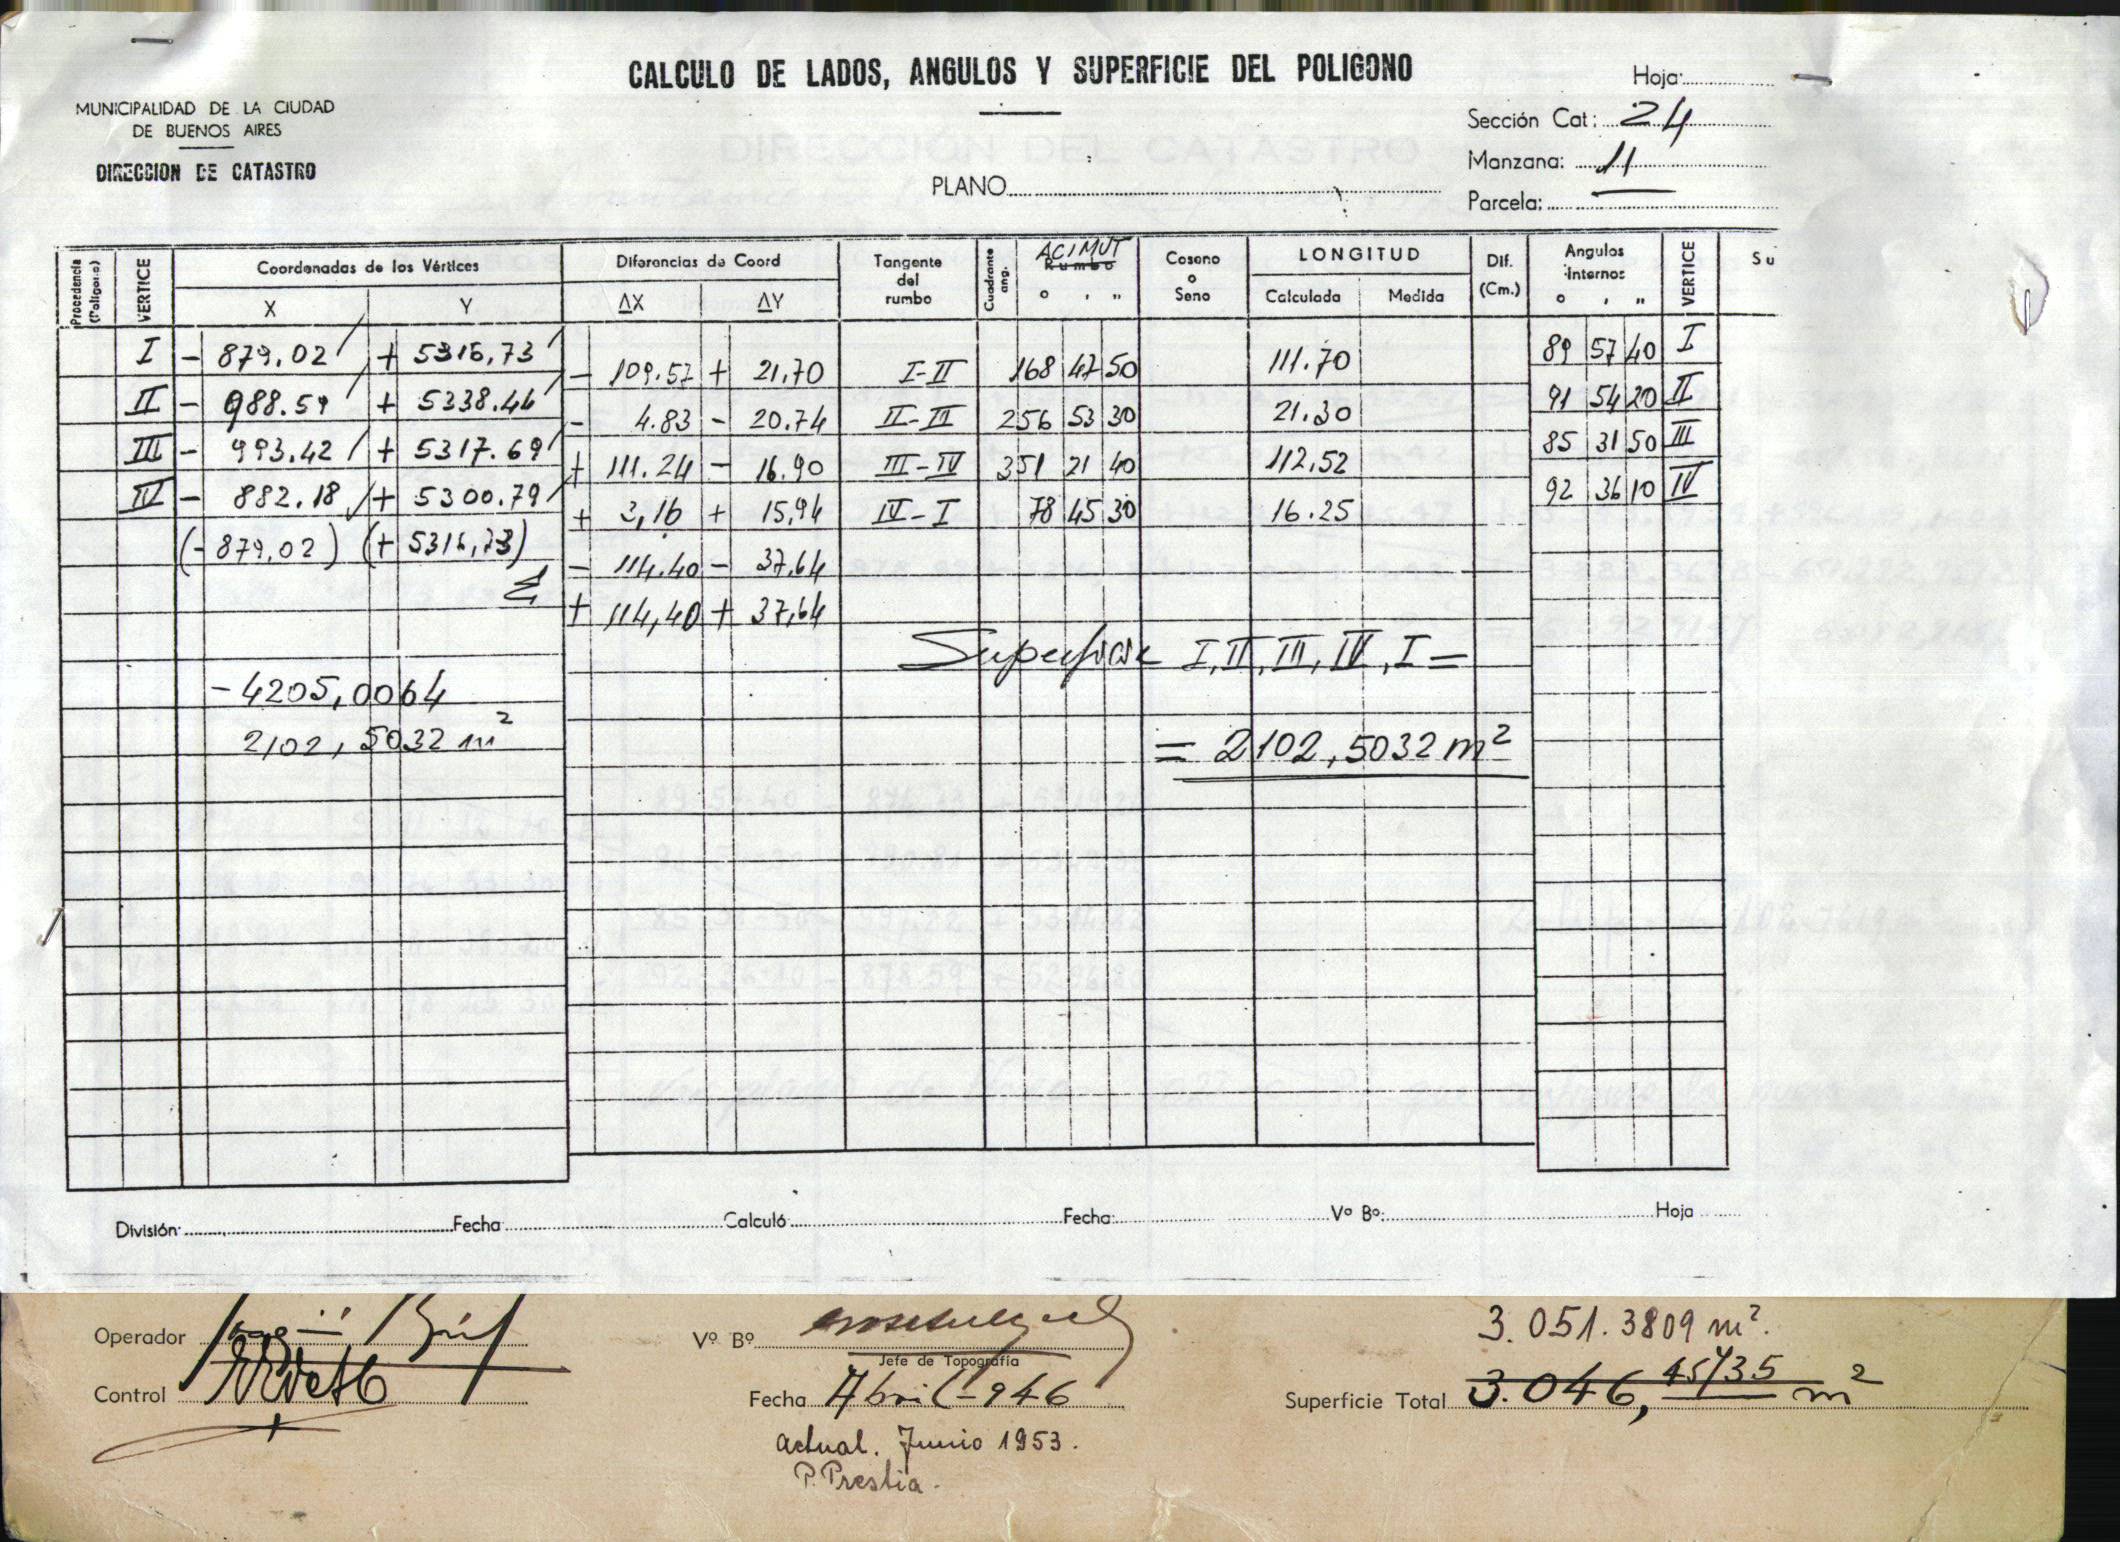 CALCULO DE LADOS, ANGULOS Y SUPERFICIE DEL POLIGONO
Hoja:
MUNICIPALIDAD DE LA CIUDAD
DE BUENOS AIRES
DIRECCION DE CATASTRO
Sección Cat: 24
Manzana: 11
Parcela: —
PLANO
Procedencia (Poligono) VERTICE Coordenadas de los Vértices Diferencias de Coord Tangente del rumbo Cuadrante ang. ACIMUT Rumbo Coseno o Seno LONGITUD Dif. (Cm.) Angulos Internos VERTICE Su
X Y ΔX ΔY ° ' " Calculada Medida ° ' "
I - 879.02 + 5316,73 89 57 40 I
- 109.57 + 21,70 I-II 168 47 50 111.70
II - 988.59 + 5338.44 91 54 20 II
- 4.83 - 20.74 II-III 256 53 30 21.30
III - 993.42 + 5317.69 85 31 50 III
+ 111.24 - 16.90 III-IV 351 21 40 112,52
IV - 882.18 + 5300.79 92 36 10 IV
+ 3,16 + 15,94 IV-I 78 45 30 16.25
(-879,02) (+ 5316,73)
- 114.40 - 37,64
Σ + 114,40 + 37,64
Superficie I, II, III, IV, I =
-4205,0064
2102,5032 m²
= 2102,5032 m²
División: Fecha Calculó Fecha: Vº Bº: Hoja
3.051.3809 m².
Operador Vº Bº
Jefe de Topografía
Control Fecha Abril-946 Superficie Total 3.046,45735 m²
actual. Junio 1953.
P. Prestia.